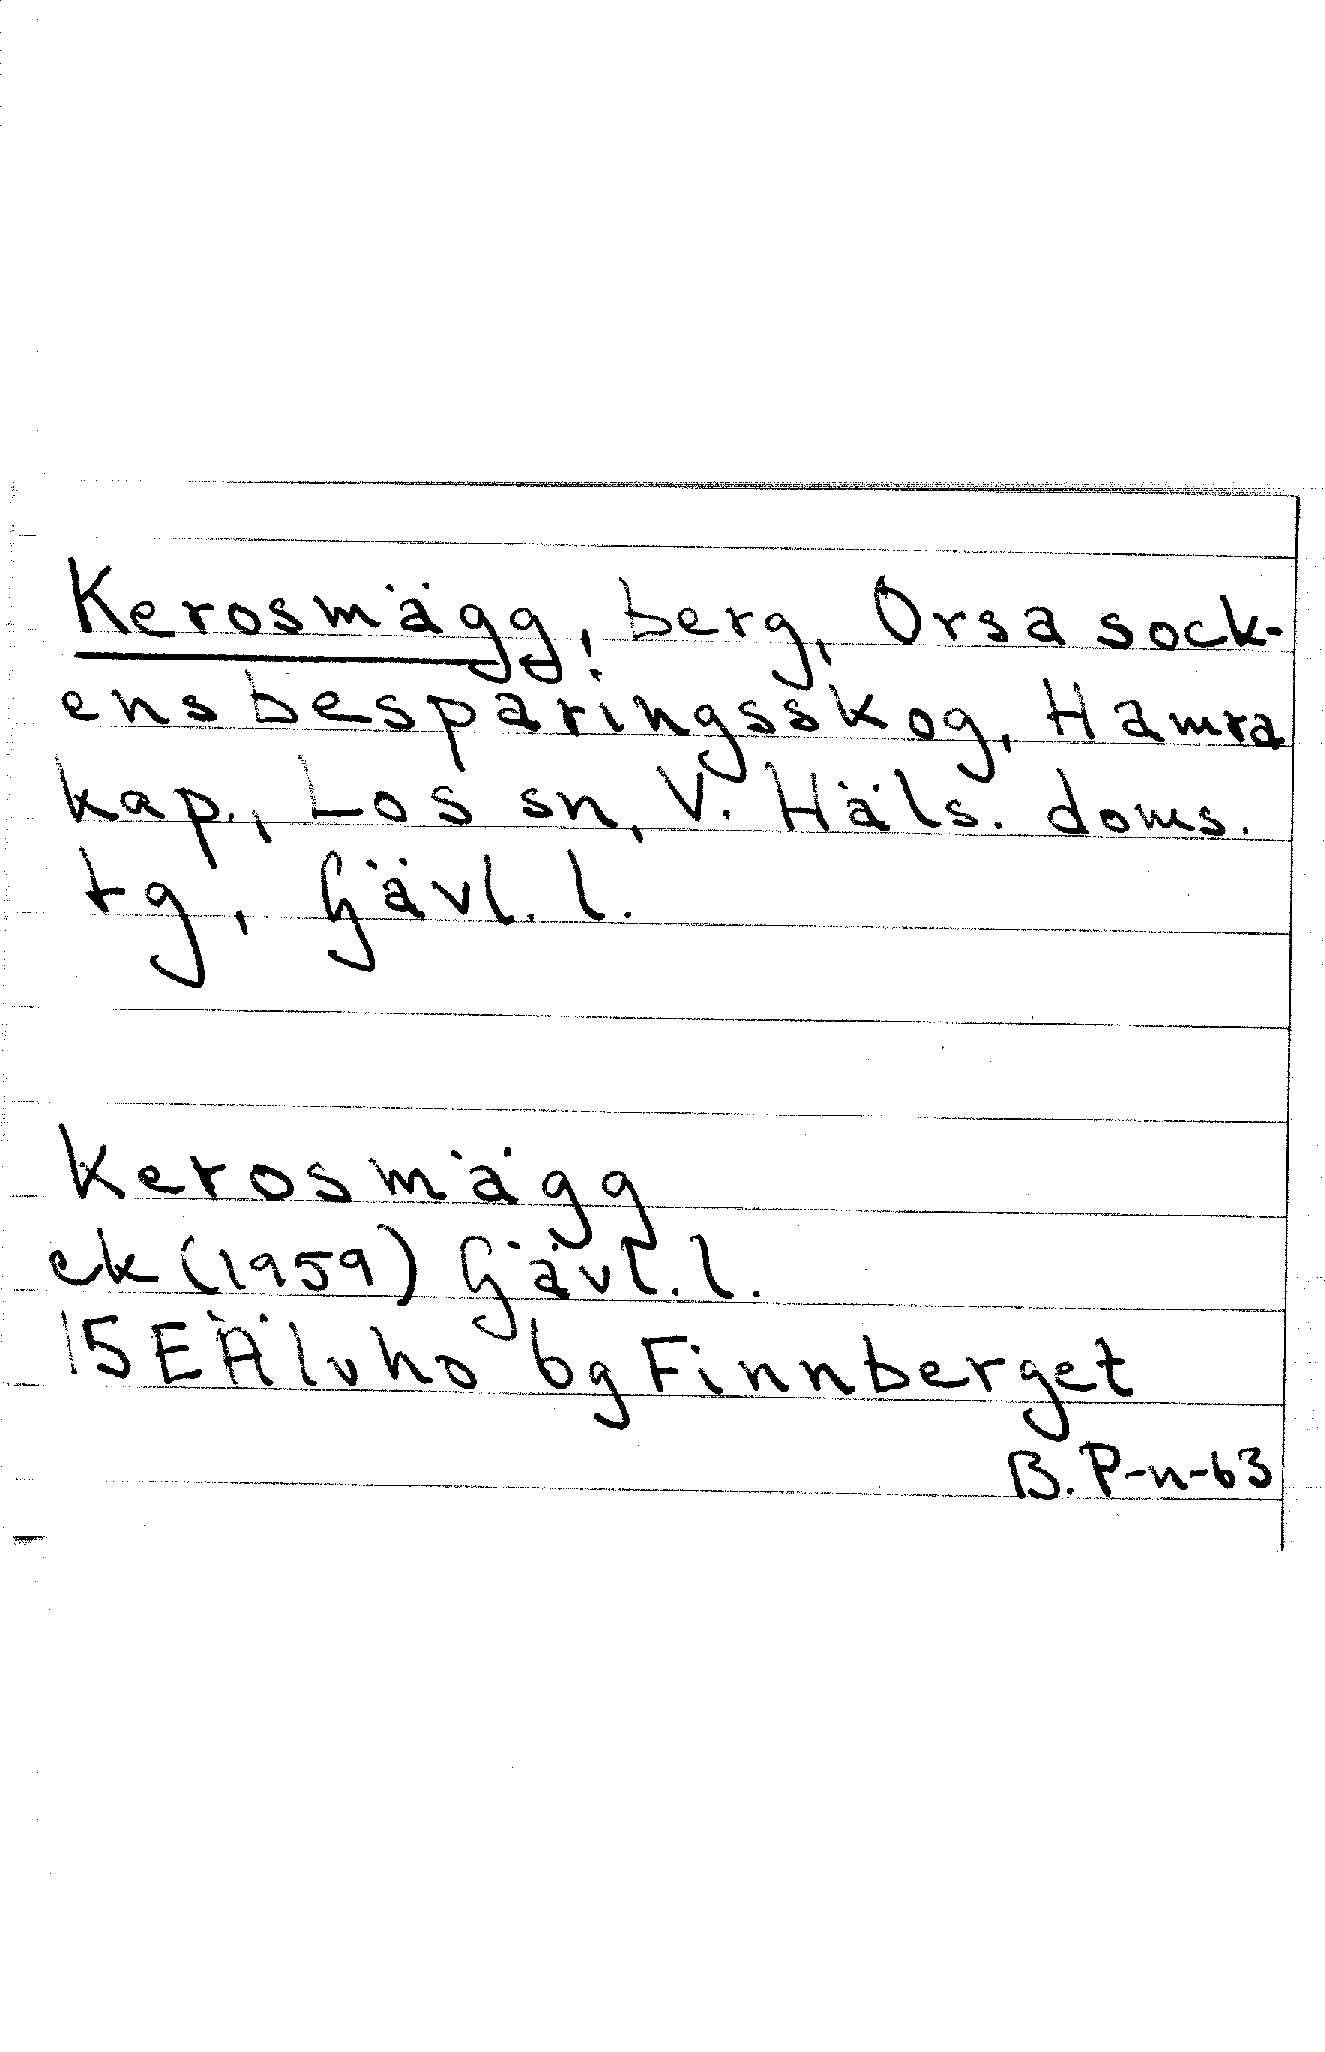 Kerosmägg, berg, Orsa sock-
ens besparingsskog, Hamra
kap., Los sn, V. Häls. doms.
tg, Gävl. l.
Kerosmägg
ek (1959) Gävl. l.
15 E Älvho bg Finnberget
B. P-n-63